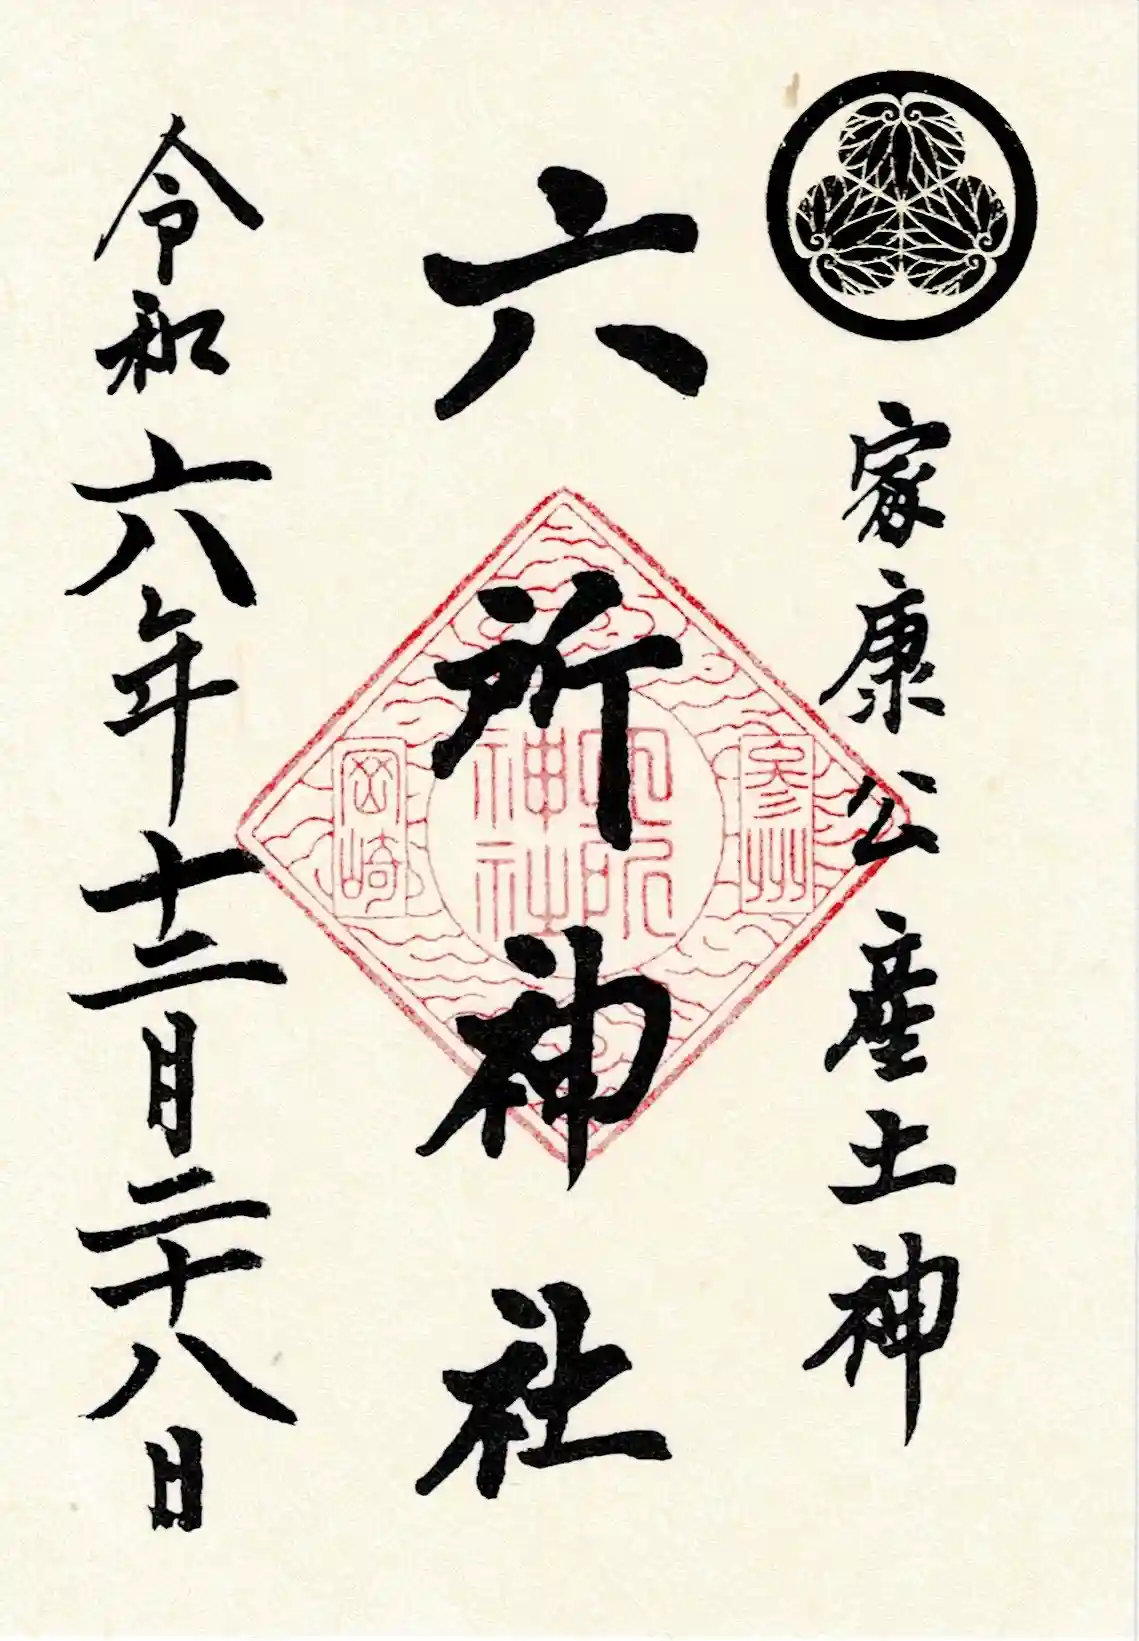 家康公産土神
六所神社
令和六年十二月二十八日
参州
六所
神社
岡崎